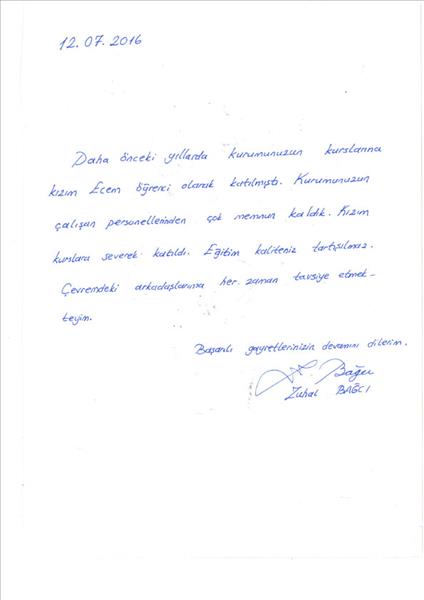 12.07.2016
Daha önceki yıllarda kurumunuzun kurslarına
kızım Ecem öğrenci olarak katılmıştı. Kurumunuzun
çalışan personellerinden çok memnun kaldık. Kızım
kurslara severek katıldı. Eğitim kaliteniz tartışılmaz.
Çevremdeki arkadaşlarıma her zaman tavsiye etmek-
teyim.
Başarılı gayretlerinizin devamını dilerim.
Bağcı
Zuhal BAĞCI